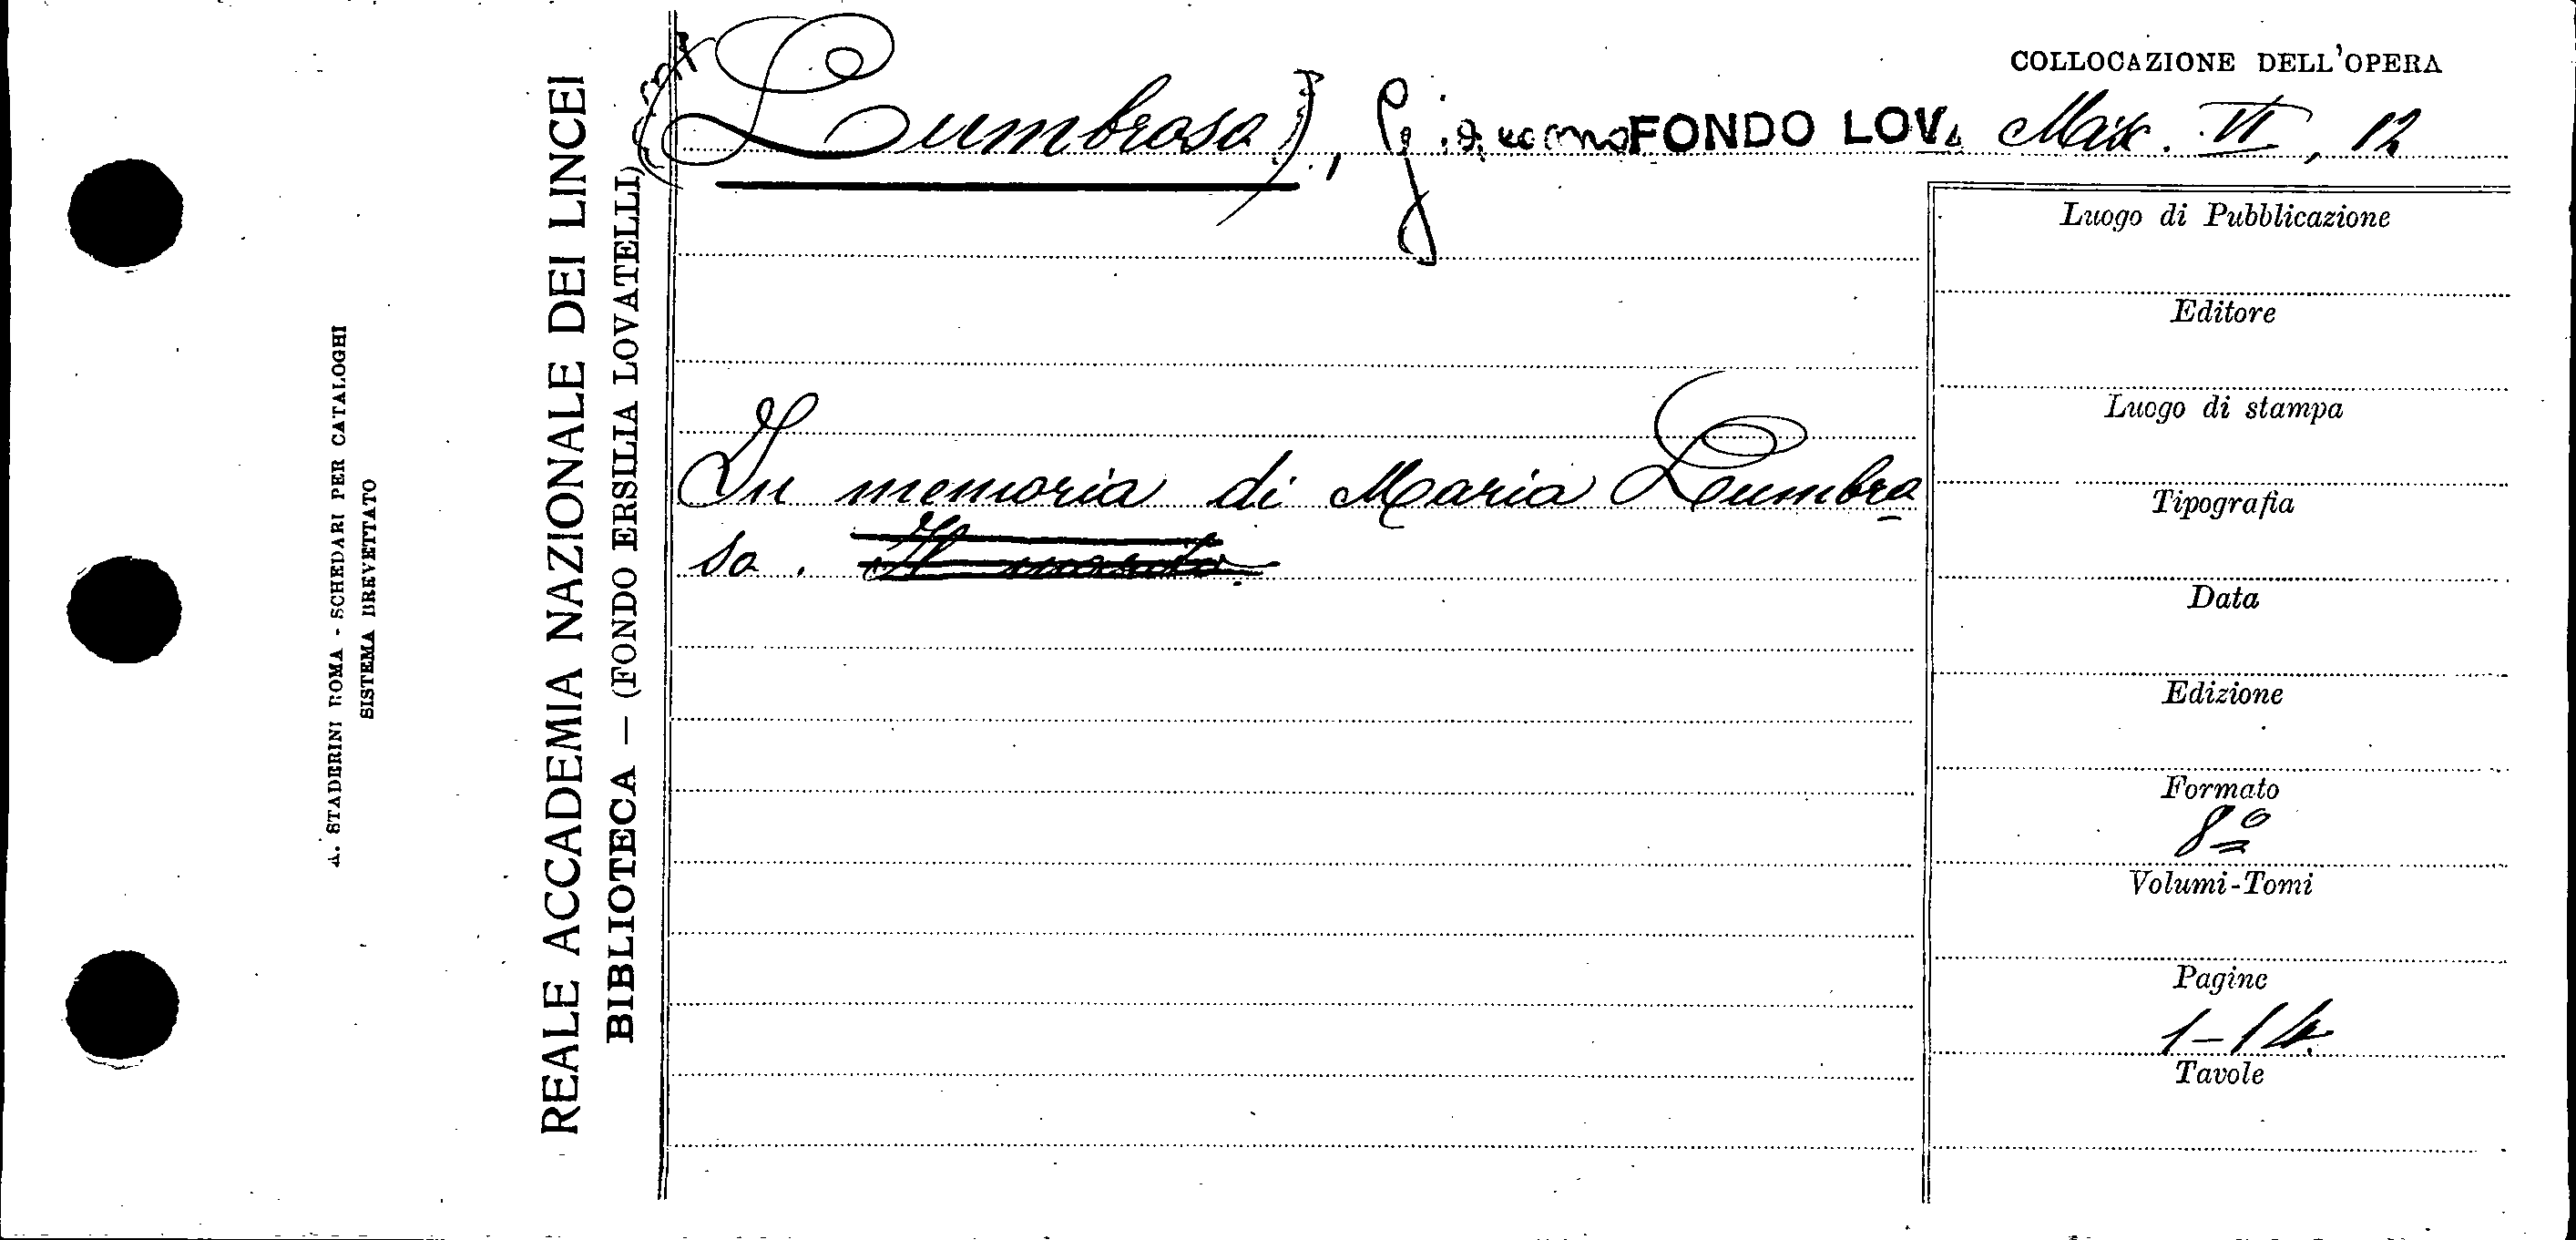 COLLOCAZIONE DELL'OPERA
(Lumbroso), Giacomo FONDO LOV. Misc. VI, 12
In memoria di Maria Lumbro
so. Il marito.
Luogo di Pubblicazione
Editore
Luogo di stampa
Tipografia
Data
Edizione
Formato
8º
Volumi-Tomi
Pagine
1-14.
Tavole
REALE ACCADEMIA NAZIONALE DEI LINCEI
BIBLIOTECA — (FONDO ERSILIA LOVATELLI)
A. STADERINI ROMA - SCHEDARI PER CATALOGHI
SISTEMA BREVETTATO